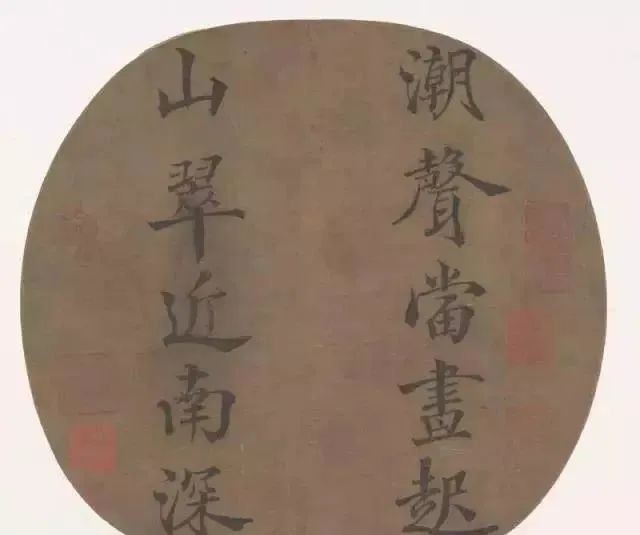 潮聲當晝起
山翠近南深